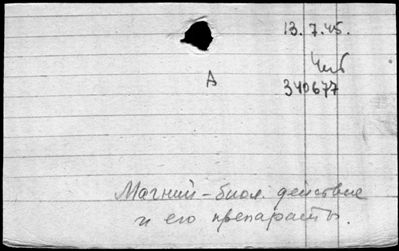 13.7.45.
А
340677
Магний – биол. действие
и его препараты.